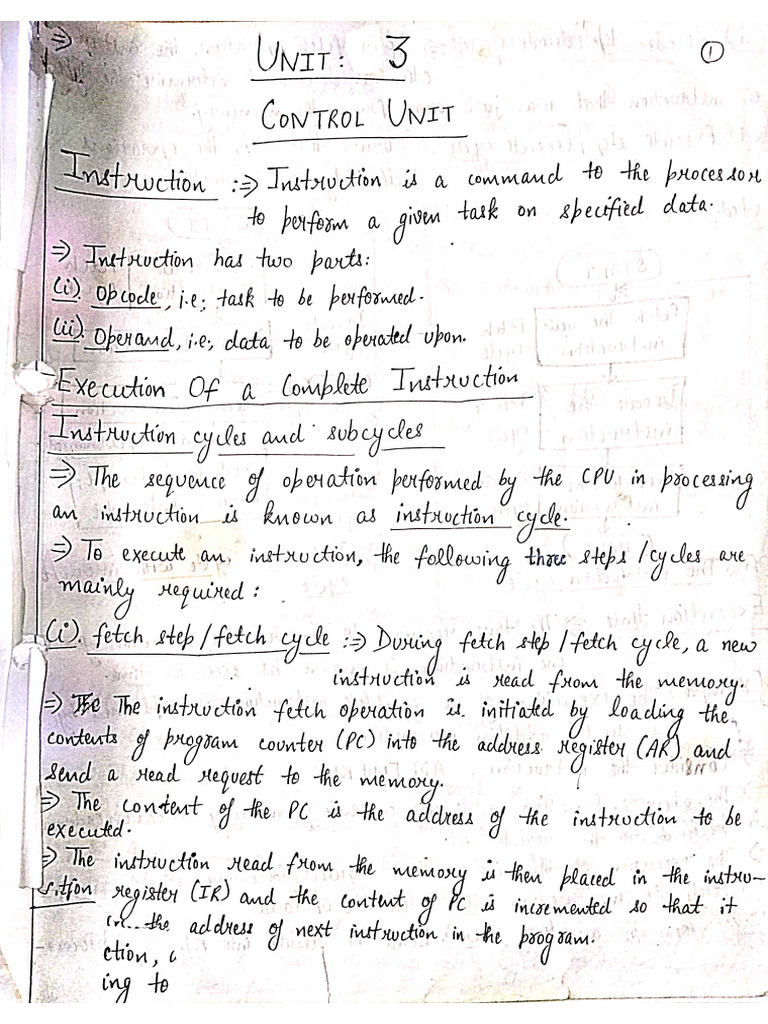 ⇒
UNIT: 3
①
CONTROL UNIT
Instruction :⇒ Instruction is a command to the processor
to perform a given task on specified data.
⇒ Instruction has two parts:
(i). Opcode, i.e; task to be performed.
(ii). Operand, i.e, data to be operated upon.
Execution Of a Complete Instruction
Instruction cycles and subcycles
⇒ The sequence of operation performed by the CPU in processing
an instruction is known as instruction cycle.
⇒ To execute an instruction, the following three steps/cycles are
mainly required:
(i). fetch step/fetch cycle :⇒ During fetch step/fetch cycle, a new
instruction is read from the memory.
⇒ The instruction fetch operation is initiated by loading the
contents of program counter (PC) into the address register (AR) and
send a read request to the memory.
⇒ The content of the PC is the address of the instruction to be
executed.
⇒ The instruction read from the memory is then placed in the instru-
ction register (IR) and the content of PC is incremented so that it
the address of next instruction in the program.
ction,
ing to